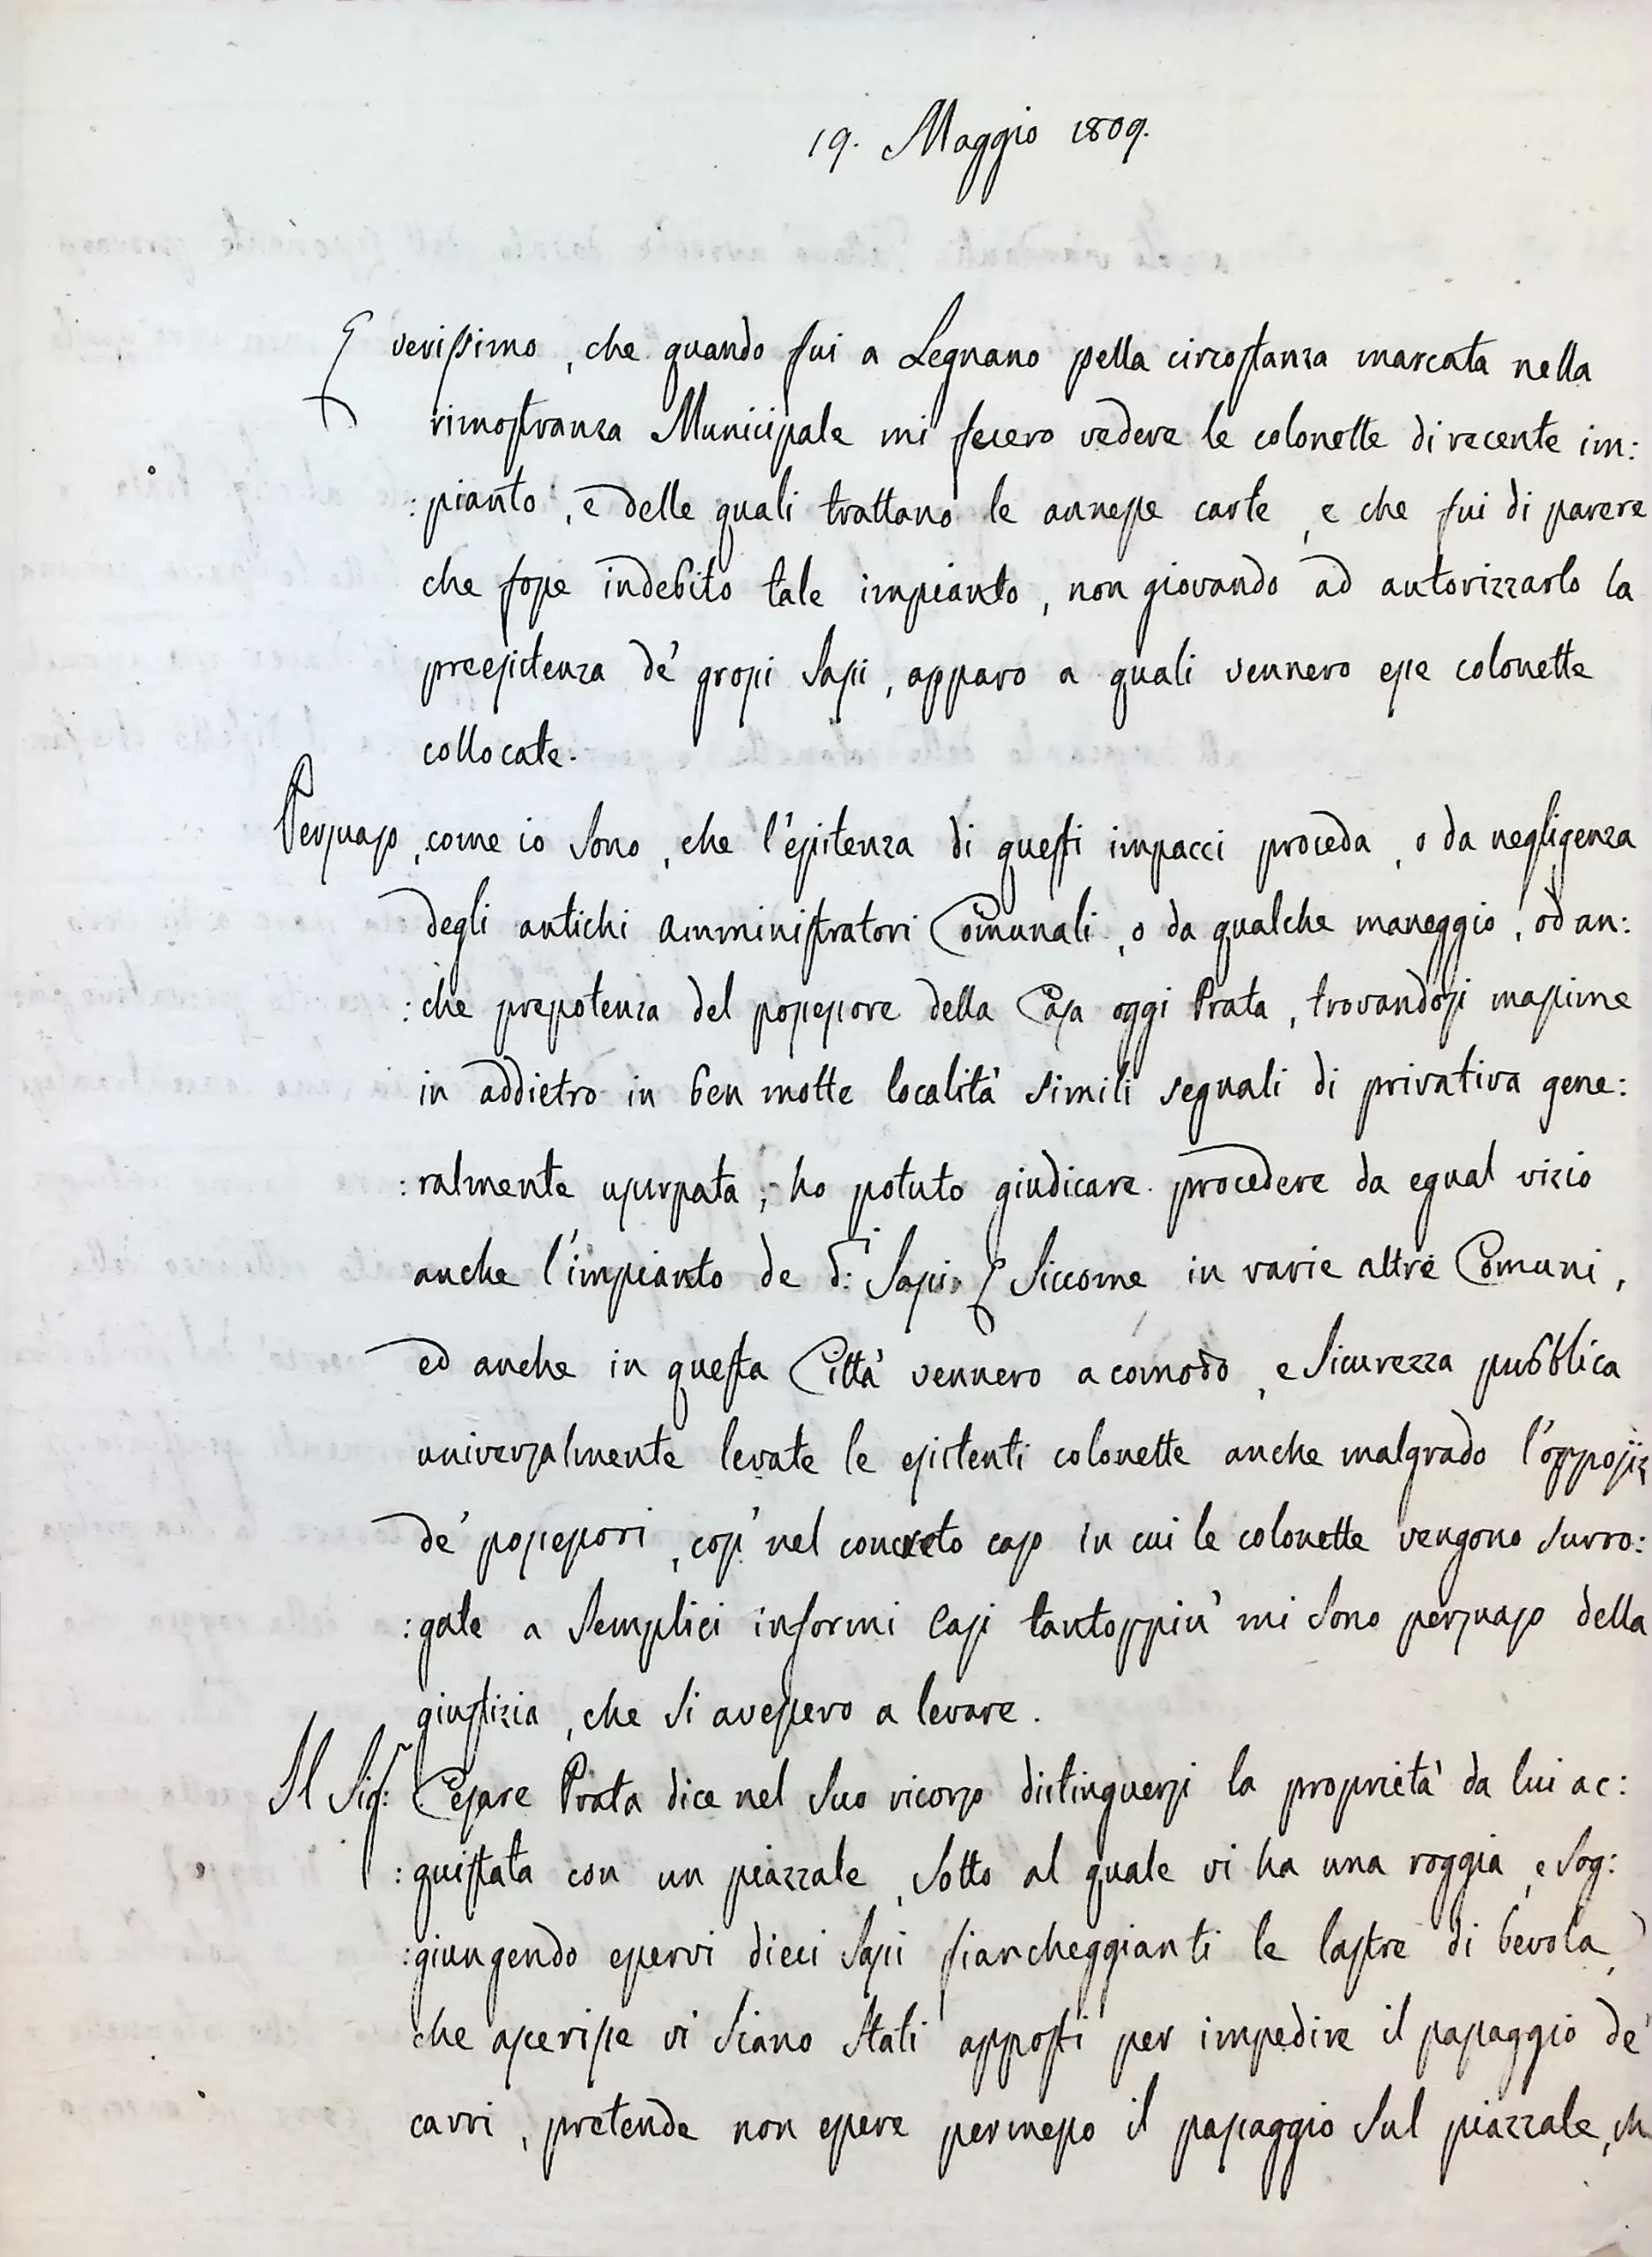 19. Maggio 1809.
E verissimo, che quando fui a Legnano pella circostanza marcata nella
rimostranza Municipale mi fecero vedere le colonette di recente im:
:pianto, e delle quali trattano le annesse carte, e che fui di parere
che fosse indebito tale impianto, non giovando ad autorizzarlo la
preesistenza de' grossi Sassi, apparo a quali vennero esse colonette
collocate.
Persuaso, come io Sono, che l'esistenza di questi impacci proceda, o da negligenza
degli antichi Amministratori Comunali, o da qualche maneggio, od an:
:che prepotenza del possessore della Casa oggi Prata, trovandosi massime
in addietro in ben molte località simili segnali di privativa gene:
:ralmente usurpata; ho potuto giudicare procedere da egual vizio
anche l'impianto de d.i Sassi. E Siccome in varie altre Comuni,
ed anche in questa Città vennero a comodo, e Sicurezza pubblica
universalmente levate le esistenti colonette anche malgrado
de' possessori, così nel concreto caso in cui le colonette vengono Surro:
:gate a Semplici informi Sassi tantoppiù mi Sono persuaso della
giustizia, che Si avessero a levare.
Il Sig.r Cesare Prata dice nel Suo ricorso distinguersi la proprietà da lui ac:
:quistata con un piazzale, Sotto al quale vi ha una roggia, e Sog:
:giungendo esservi dieci Sassi fiancheggianti le lastre di bevola,
che asserisse vi Siano Stati apposti per impedire il passaggio de'
carri, pretende non essere permesso il passaggio Sul piazzale,